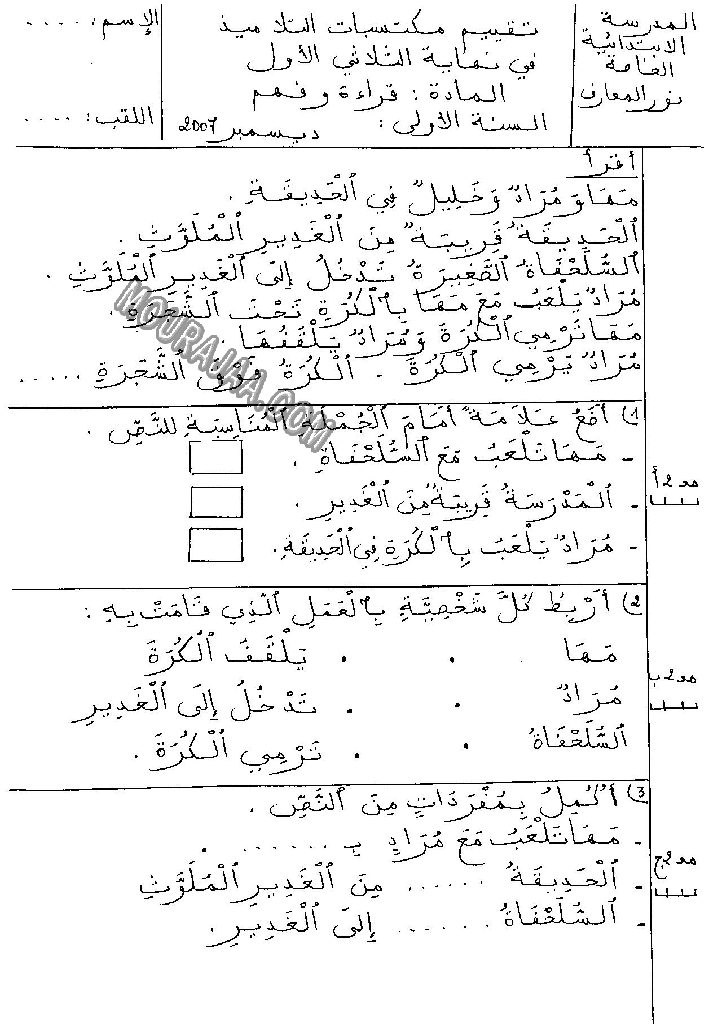 المدرسة
الابتدائية
الخاصة
نور المعارف
تقييم مكتسبات التلاميذ
في نهاية الثلاثي الأول
المادة : قراءة و فهم
السنة الأولى : ديسمبر 2007
الإسم : .....
اللقب : ....
أقرأ
مَهَا وَ مُرَادٌ وَ خَلِيلٌ فِي الْحَدِيقَةِ .
الْحَدِيقَةُ قَرِيبَةٌ مِنَ الْغَدِيرِ الْمُلَوَّثِ .
السُّلَحْفَاةُ الصَّغِيرَةُ تَدْخُلُ إِلَى الْغَدِيرِ الْمُلَوَّثِ .
مُرَادٌ يَلْعَبُ مَعَ مَهَا بِالْكُرَةِ تَحْتَ الشَّجَرَةِ .
مَهَا تَرْمِي الْكُرَةَ وَ مُرَادٌ يَلْقَفُهَا
مُرَادٌ يَرْمِي الْكُرَةَ . الْكُرَةُ فَوْقَ الشَّجَرَةِ .....
MOURAJAA.COM
1) أَضَعُ عَلَامَةً أَمَامَ الْجُمْلَةِ الْمُنَاسِبَةِ لِلنَّصِّ .
- مَهَا تَلْعَبُ مَعَ السُّلَحْفَاةِ .
- الْمَدْرَسَةُ قَرِيبَةٌ مِنَ الْغَدِيرِ .
- مُرَادٌ يَلْعَبُ بِالْكُرَةِ فِي الْحَدِيقَةِ .
مع 2 أ
2) أَرْبِطُ كُلَّ شَخْصِيَّةٍ بِالْعَمَلِ الَّذِي قَامَتْ بِهِ :
مَهَا . . يَلْقَفُ الْكُرَةَ
مُرَادٌ . . تَدْخُلُ إِلَى الْغَدِيرِ
السُّلَحْفَاةُ . . تَرْمِي الْكُرَةَ .
مع 2 ب
3) أُكْمِلُ بِمُفْرَدَاتٍ مِنَ النَّصِّ .
- مَهَا تَلْعَبُ مَعَ مُرَادٍ بِ ...... .
- الْحَدِيقَةُ ...... مِنَ الْغَدِيرِ الْمُلَوَّثِ
- السُّلَحْفَاةُ ...... إِلَى الْغَدِيرِ .
مع 2 ج